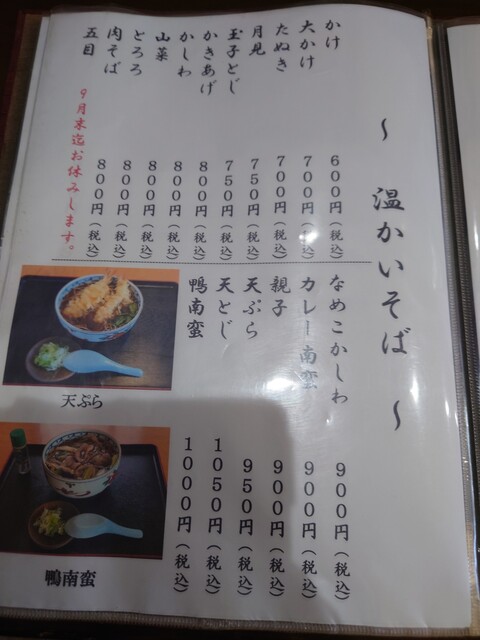 ～ 温かいそば ～
かけ 600円(税込)
大かけ 700円(税込)
たぬき 700円(税込)
月見 750円(税込)
玉子とじ 750円(税込)
かきあげ 800円(税込)
かしわ 800円(税込)
山菜 800円(税込)
とろろ 800円(税込)
肉そば 800円(税込)
五目
9月末迄お休みします。
なめこかしわ 900円(税込)
カレー南蛮 900円(税込)
親子 900円(税込)
天ぷら 950円(税込)
天とじ 1050円(税込)
鴨南蛮 1000円(税込)
天ぷら
鴨南蛮